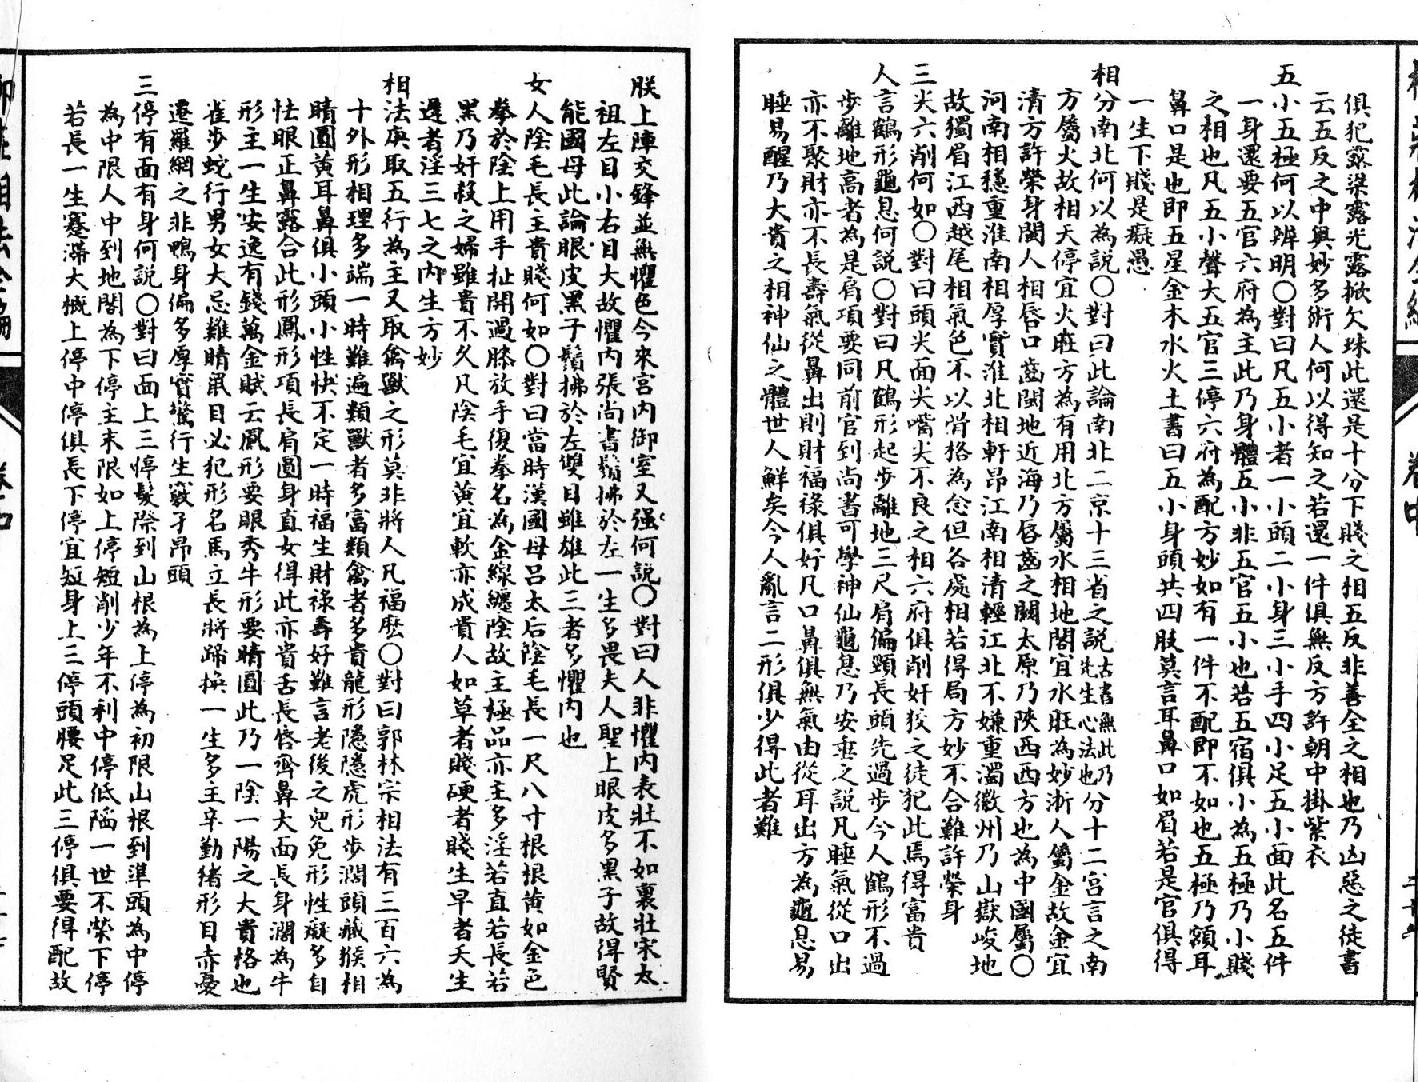 俱犯露染露光露掀欠珠此還是十分下賤之相五反非善全之相也乃凶惡之徒書
云五反之中奥妙多術人何以得知之若還一件俱無反方許朝中掛紫衣
五小五極何以辨明〇對曰凡五小者一小頭二小身三小手四小足五小面此名五件
一身還要五官六府為主此乃身體五小非五官五小也若五宿俱小為五極乃小賤
之相也凡五小聲大五官三停六府為配方妙如有一件不配即不如也五極乃額耳
鼻口是也即五星金木水火土書曰五小身頭共四肢莫言耳鼻口如眉若是官俱得
一生下賤是癡愚
相分南北何以為說〇對曰此論南北二京十三省之説古書無此乃先生心法也分十二宮言之南
方屬火故相天停宜火旺方為有用北方屬水相地閣宜水旺為妙浙人屬金故金宜
清方許榮身閩人相唇口齒閩地近海乃唇齒之關太原乃陝西西方也為中國屬〇
河南相穩重淮南相厚實淮北相軒昂江南相清輕江北不嫌重濁徽州乃山嶽峻地
故獨眉江西越尾相氣色不以骨格為念但各處相若得局方妙不合難許榮身
三尖六削何如〇對曰頭尖面尖嘴尖不良之相六府俱削奸狡之徒犯此焉得富貴
人言鶴形龜息何説〇對曰凡鶴形起步離地三尺肩偏頸長頭先過步今人鶴形不過
步離地高者為是肩項要同前官到尚書可學神仙龜息乃安垂之説凡睡氣從口出
亦不聚財亦不長壽氣從鼻出則財福祿俱好凡口鼻俱無氣由從耳出方為龜息易
睡易醒乃大貴之相神仙之體世人鮮矣今人亂言二形俱少得此者難
朕上陣交鋒並無懼色今來宮内御室又强何説〇對曰人非懼内表壯不如裏壯宋太
祖左目小右目大故懼内張尚書鬚拂於左一生多畏夫人聖上眼皮多黑子故得賢
能國母此論眼皮黑子鬚拂於左雙目雖雄此三者多懼内也
女人陰毛長主貴賤何如〇對曰當時漢國母呂太后陰毛長一尺八寸根根黄如金色
拳於陰上用手扯開過膝放手復拳名為金線纏陰故主極品亦主多淫若直若長若
黑乃奸殺之婦雖貴不久凡陰毛宜黄宜軟亦成貴人如草者賤硬者賤生早者夭生
遲者淫三七之内生方妙
相法庾取五行為主又取禽獸之形莫非將人凡福麽〇對曰郭林宗相法有三百六為
十外形相理多端一時難遍類獸者多富類禽者多貴龍形隱隱虎形步濶頭藏猴相
睛圓黄耳鼻俱小頭小性快不定一時福生財祿壽好難言老後之兜兔形性癡多自
怯眼正鼻露合此形鳳形項長肩圓身直女得此亦貴舌長唇齊鼻大面長身濶為牛
形主一生安逸有錢萬金賦云鳳形要眼秀牛形要睛圓此乃一陰一陽之大貴格也
雀步蛇行男女大忌雞睛鼠目必犯形名馬立長將蹄換一生多主辛勤緒形目赤憂
遷羅網之非鴨身偏多厚實鷩行生竅孑昂頭
三停有面有身何説〇對曰面上三停髮際到山根為上停為初限山根到準頭為中停
為中限人中到地閣為下停主末限如上停短削少年不利中停低陷一世不榮下停
若長一生蹇滯大概上停中停俱長下停宜短身上三停頭腰足此三停俱要得配故
卷中